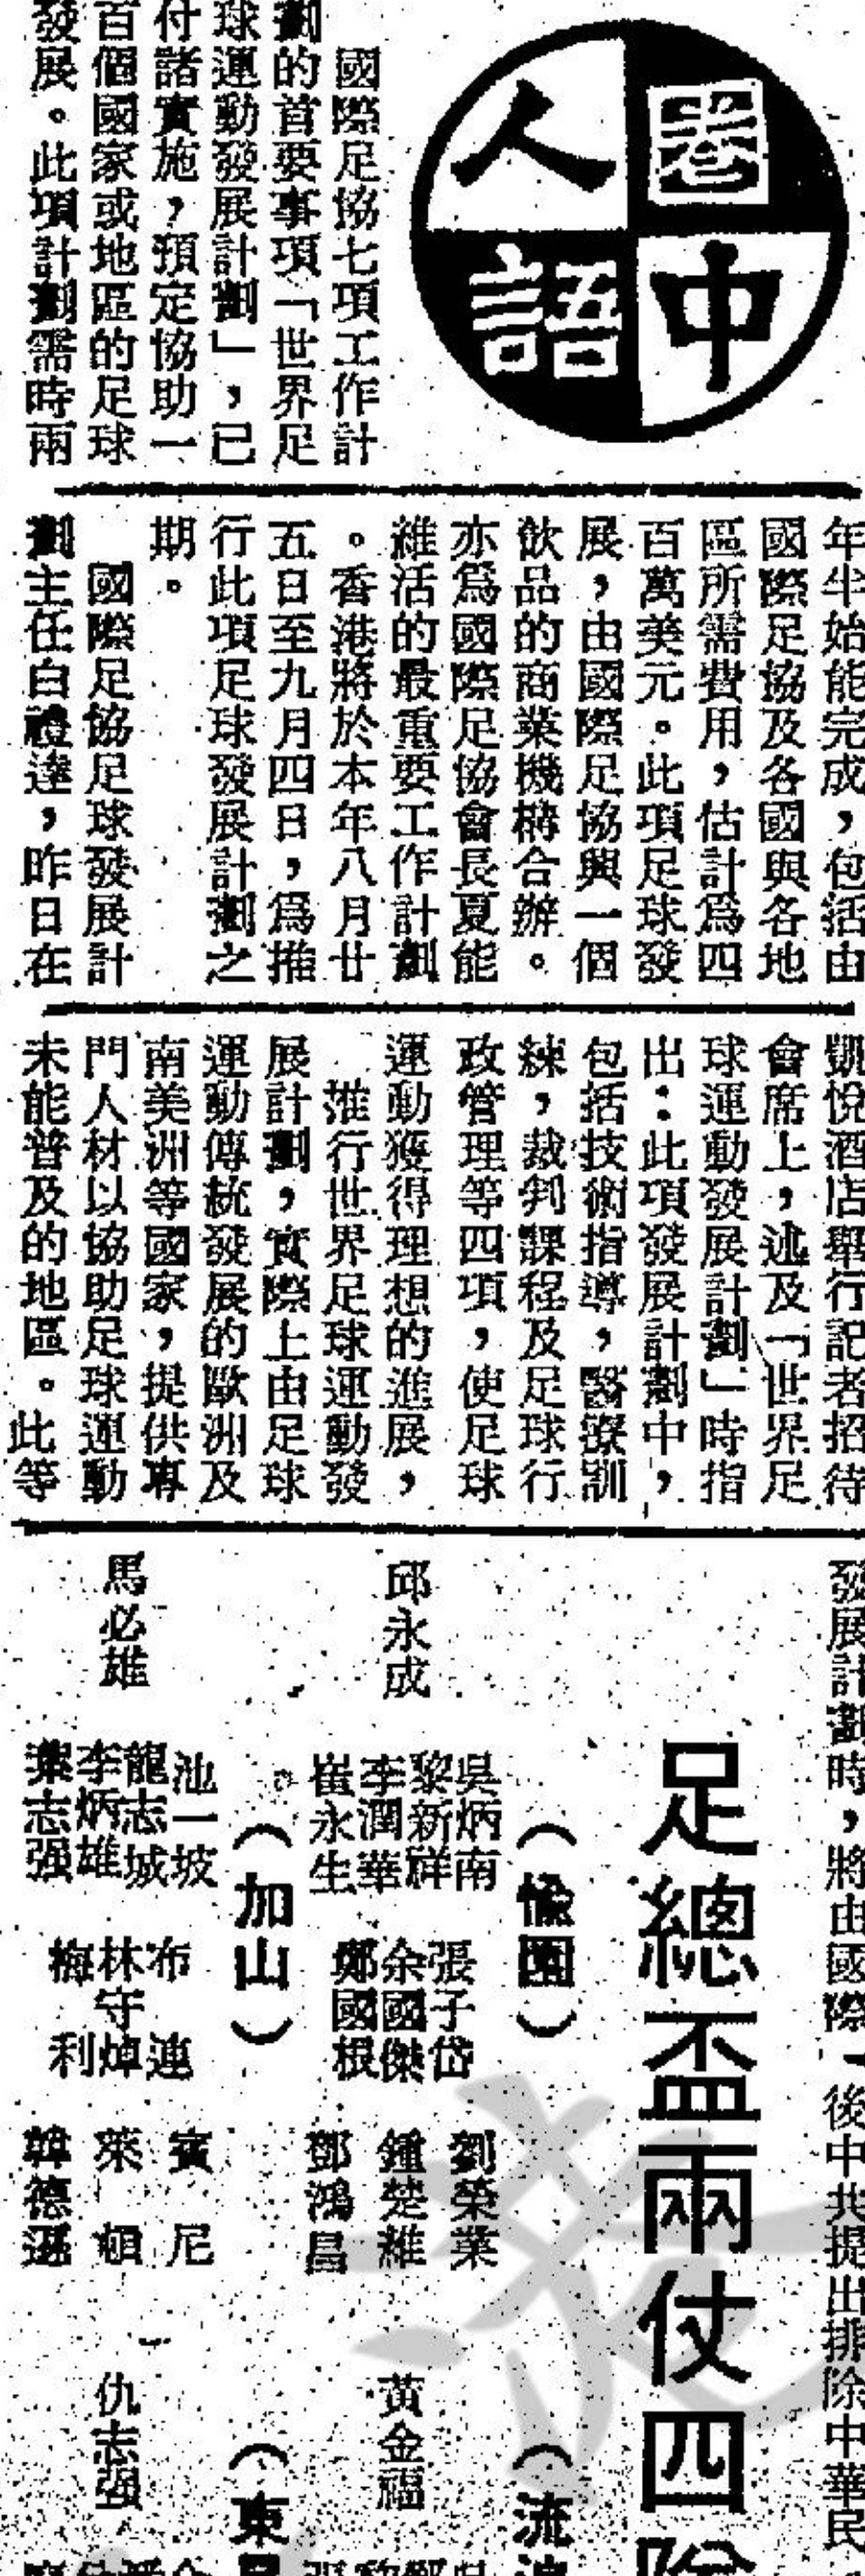 圈中人語
國際足協七項工作計
劃的首要事項「世界足
球運動發展計劃」，已
付諸實施，預定協助一
百個國家或地區的足球
發展。此項計劃需時兩
年半始能完成，包括由
國際足協及各國與各地
區所需費用，估計為四
百萬美元。此項足球發
展，由國際足協與一個
飲品的商業機構合辦。
亦為國際足協會長夏能
維活的最重要工作計劃
。香港將於本年八月廿
五日至九月四日，為推
行此項足球發展計劃之
期。
國際足協足球發展計
劃主任白禮達，昨日在
凱悅酒店舉行記者招待
會席上，述及「世界足
球運動發展計劃」時指
出：此項發展計劃中，
包括技術指導，醫療訓
練，裁判課程及足球行
政管理等四項，使足球
運動獲得理想的進展，
推行世界足球運動發
展計劃，實際上由足球
運動傳統發展的歐洲及
南美洲等國家，提供專
門人材以協助足球運動
未能普及的地區。此等
發展計劃時，將由國際
後中共提出排除中華民
足總盃兩仗四
（愉園）
吳炳南
黎新祥
李潤華
崔永生
邱永成
張子岱
余國傑
鄭國根
劉榮業
鍾楚維
鄧鴻昌
（加山）
池一坡
龍志城
李炳雄
葉志强
馬必雄
布連
林守焯
梅利
賓尼
萊頓
韓德遜
（流
黃金福
（東
仇志强